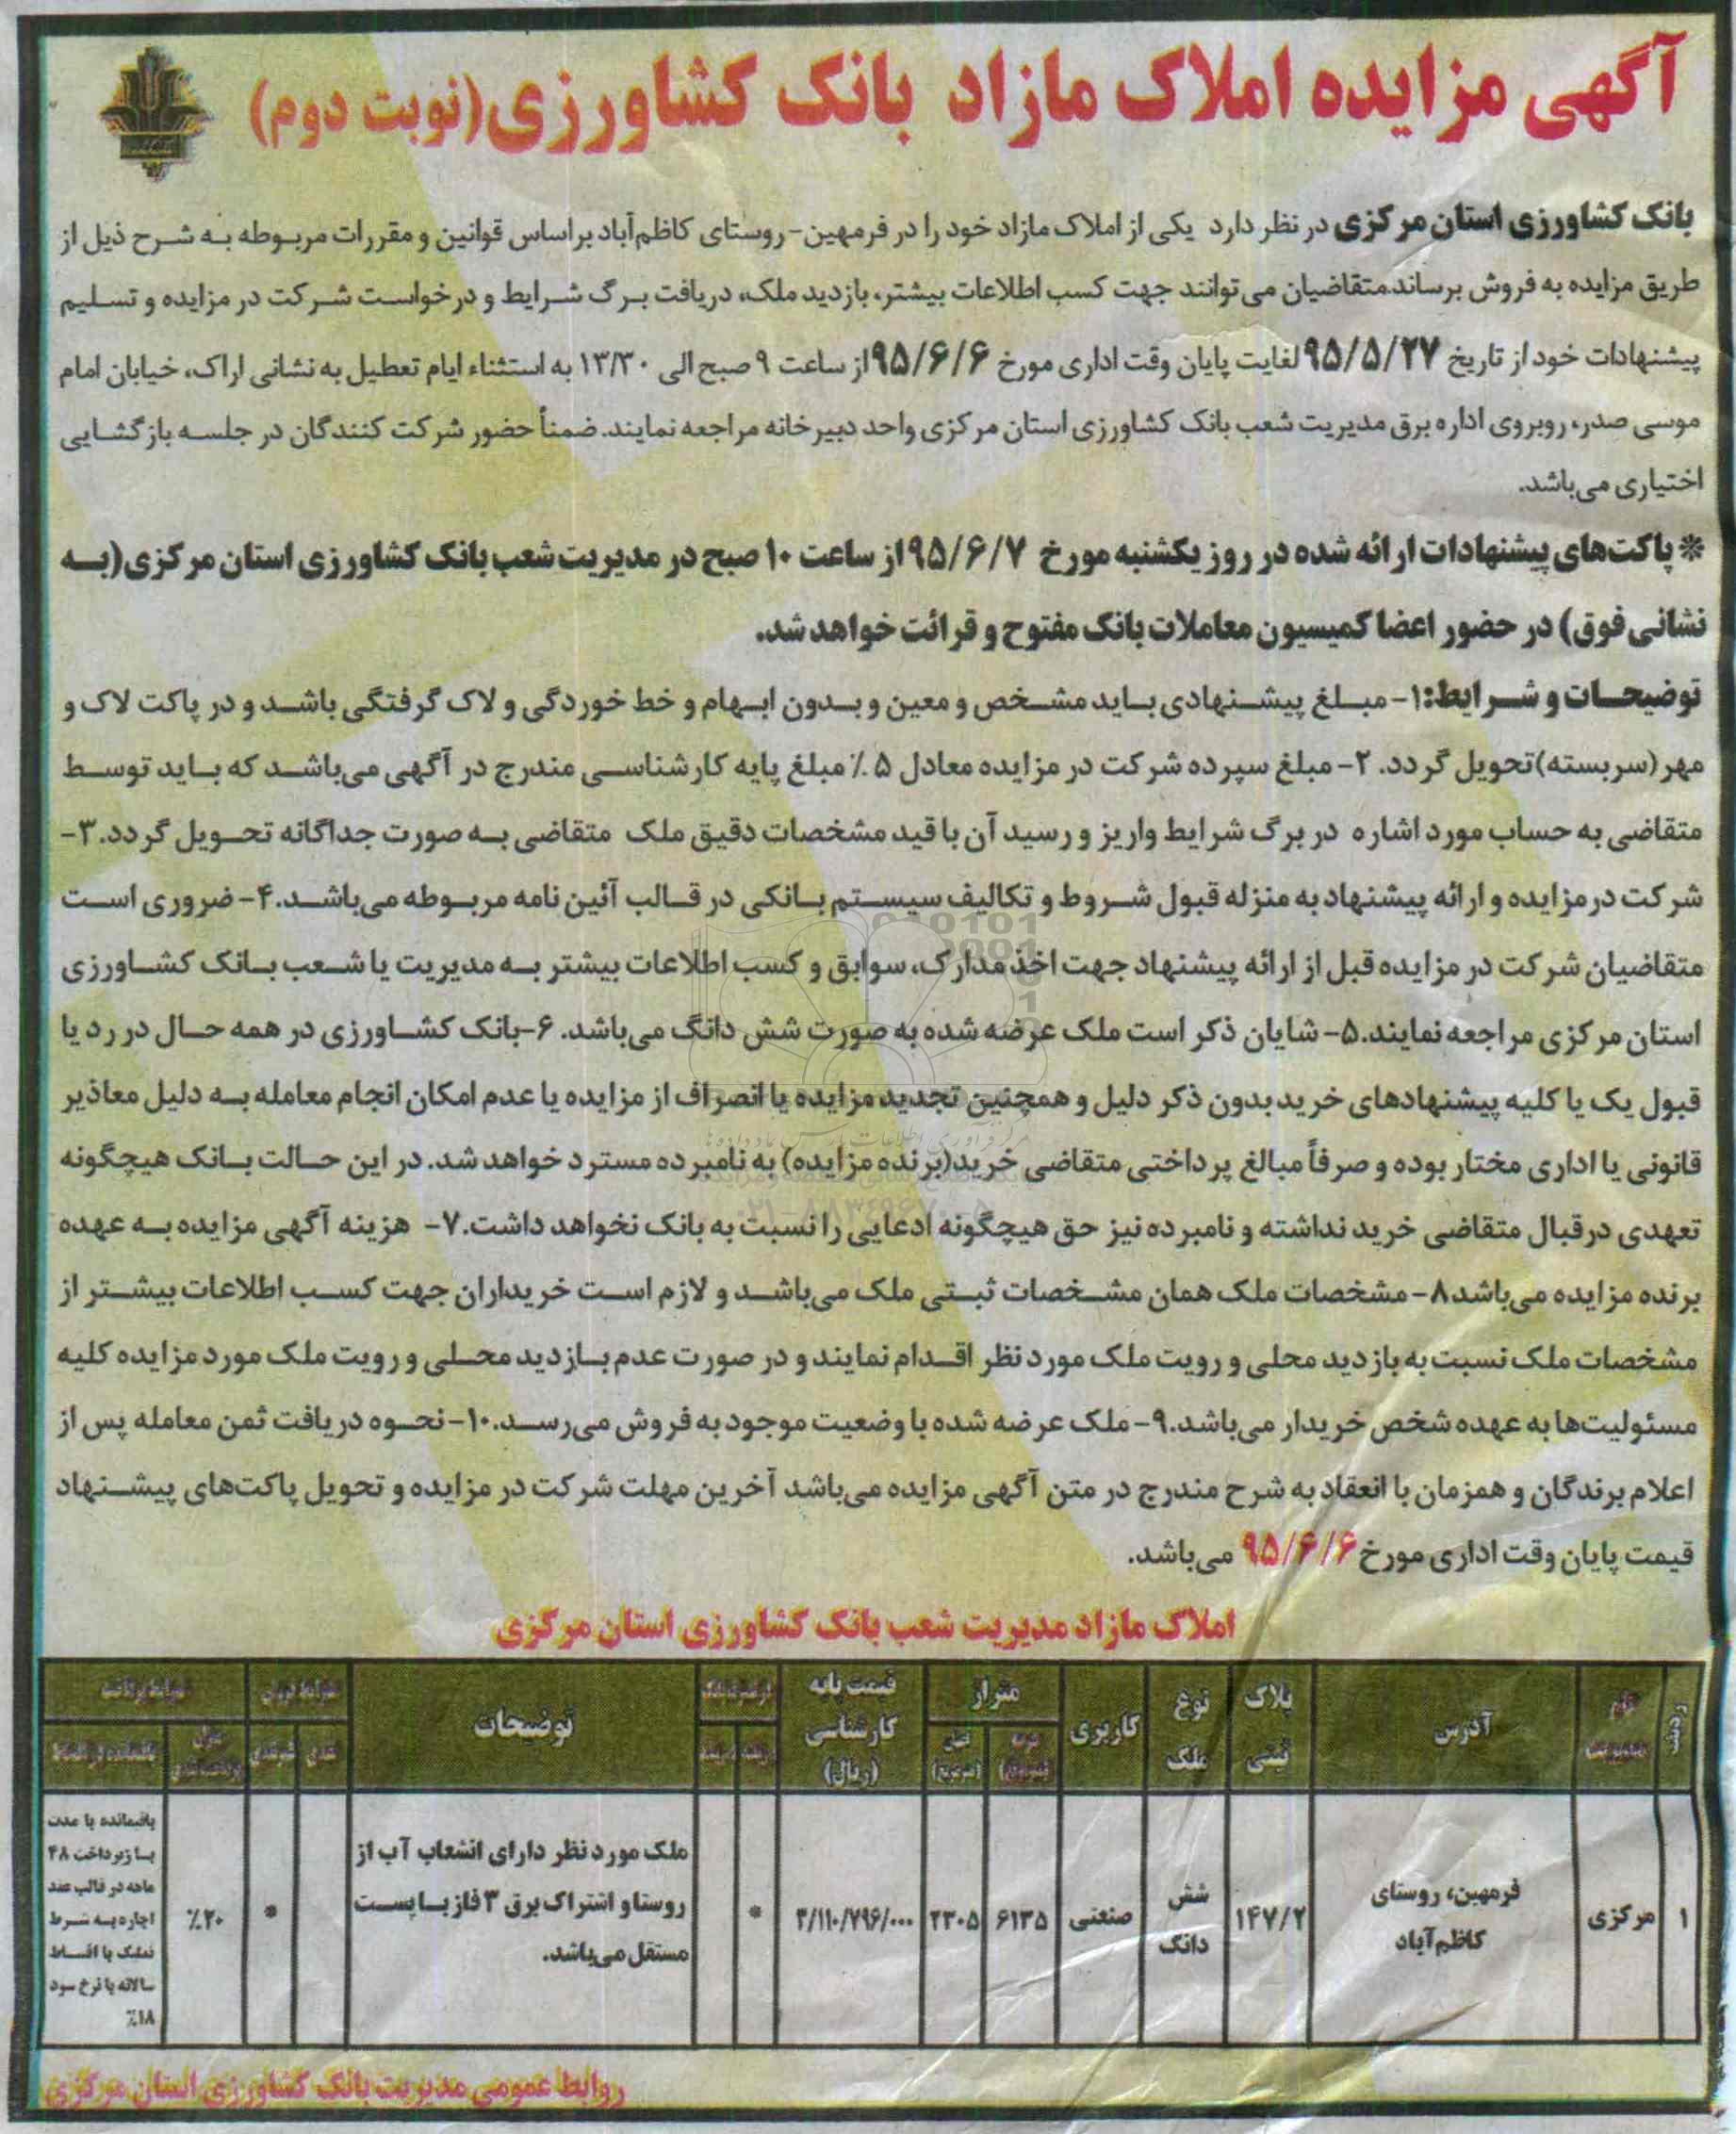 آگهی مزایده املاک مازاد بانک کشاورزی (نوبت دوم)
بانک کشاورزی استان مرکزی در نظر دارد یکی از املاک مازاد خود را در فرمهین- روستای کاظم‌آباد براساس قوانین و مقررات مربوطه به شرح ذیل از
طریق مزایده به فروش برساند.متقاضیان می‌توانند جهت کسب اطلاعات بیشتر، بازدید ملک، دریافت برگ شرایط و درخواست شرکت در مزایده و تسلیم
پیشنهادات خود از تاریخ ۹۵/۵/۲۷ لغایت پایان وقت اداری مورخ ۹۵/۶/۶ از ساعت ۹ صبح الی ۱۳/۳۰ به استثناء ایام تعطیل به نشانی اراک، خیابان امام
موسی صدر، روبروی اداره برق مدیریت شعب بانک کشاورزی استان مرکزی واحد دبیرخانه مراجعه نمایند. ضمناً حضور شرکت کنندگان در جلسه بازگشایی
اختیاری می‌باشد.
* پاکت‌های پیشنهادات ارائه شده در روز یکشنبه مورخ ۹۵/۶/۷ از ساعت ۱۰ صبح در مدیریت شعب بانک کشاورزی استان مرکزی (به
نشانی فوق) در حضور اعضا کمیسیون معاملات بانک مفتوح و قرائت خواهد شد.
توضیحات و شرایط: ۱- مبلغ پیشنهادی باید مشخص و معین و بدون ابهام و خط خوردگی و لاک گرفتگی باشد و در پاکت لاک و
مهر (سربسته) تحویل گردد. ۲- مبلغ سپرده شرکت در مزایده معادل ۵٪ مبلغ پایه کارشناسی مندرج در آگهی می‌باشد که باید توسط
متقاضی به حساب مورد اشاره در برگ شرایط واریز و رسید آن با قید مشخصات دقیق ملک متقاضی به صورت جداگانه تحویل گردد. ۳-
شرکت درمزایده و ارائه پیشنهاد به منزله قبول شروط و تکالیف سیستم بانکی در قالب آئین نامه مربوطه می‌باشد. ۴- ضروری است
متقاضیان شرکت در مزایده قبل از ارائه پیشنهاد جهت اخذ مدارک، سوابق و کسب اطلاعات بیشتر به مدیریت یا شعب بانک کشاورزی
استان مرکزی مراجعه نمایند. ۵- شایان ذکر است ملک عرضه شده به صورت شش دانگ می‌باشد. ۶-بانک کشاورزی در همه حال در رد یا
قبول یک یا کلیه پیشنهادهای خرید بدون ذکر دلیل و همچنین تجدید مزایده یا انصراف از مزایده یا عدم امکان انجام معامله به دلیل معاذیر
قانونی یا اداری مختار بوده و صرفاً مبالغ پرداختی متقاضی خرید (برنده مزایده) به نامبرده مسترد خواهد شد. در این حالت بانک هیچگونه
تعهدی درقبال متقاضی خرید نداشته و نامبرده نیز حق هیچگونه ادعایی را نسبت به بانک نخواهد داشت. ۷- هزینه آگهی مزایده به عهده
برنده مزایده می‌باشد ۸- مشخصات ملک همان مشخصات ثبتی ملک می‌باشد و لازم است خریداران جهت کسب اطلاعات بیشتر از
مشخصات ملک نسبت به بازدید محلی و رویت ملک مورد نظر اقدام نمایند و در صورت عدم بازدید محلی و رویت ملک مورد مزایده کلیه
مسئولیت‌ها به عهده شخص خریدار می‌باشد. ۹- ملک عرضه شده با وضعیت موجود به فروش می‌رسد. ۱۰- نحوه دریافت ثمن معامله پس از
اعلام برندگان و همزمان با انعقاد به شرح مندرج در متن آگهی مزایده می‌باشد آخرین مهلت شرکت در مزایده و تحویل پاکت‌های پیشنهاد
قیمت پایان وقت اداری مورخ ۹۵/۶/۶ می‌باشد.
املاک مازاد مدیریت شعب بانک کشاورزی استان مرکزی
ردیف
نام مدیریت
آدرس
پلاک ثبتی
نوع ملک
کاربری
متراژ
عرصه (مترمربع)
اعیان (مترمربع)
قیمت پایه کارشناسی (ریال)
توضیحات
نقدی
غیرنقدی
۱
مرکزی
فرمهین، روستای کاظم‌آباد
۱۴۷/۲
شش دانگ
صنعتی
۶۱۳۵
۲۳۰۵
*
ملک مورد نظر دارای انشعاب آب از
روستا و اشتراک برق ۳ فاز با پست
مستقل می‌باشد.
*
٪۲۰
باقیمانده با مدت
بازپرداخت ۴۸
ماهه در قالب عقد
اجاره به شرط
تملیک با اقساط
سالانه با نرخ سود
٪۱۸
روابط عمومی مدیریت بانک کشاورزی استان مرکزی